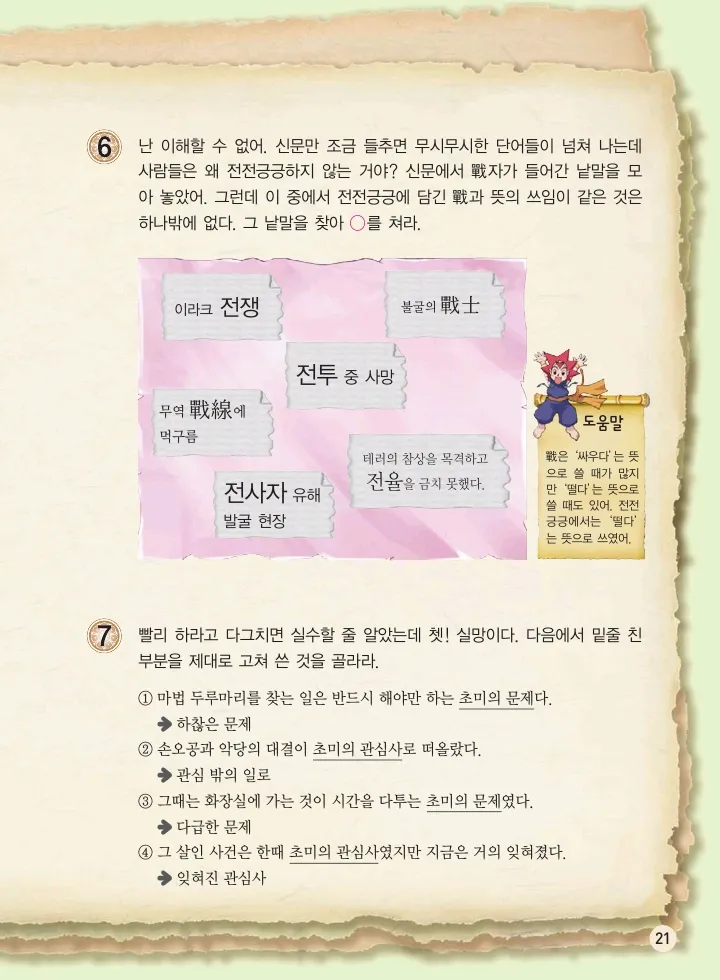 6
난 이해할 수 없어. 신문만 조금 들추면 무시무시한 단어들이 넘쳐 나는데
사람들은 왜 전전긍긍하지 않는 거야? 신문에서 戰자가 들어간 낱말을 모
아 놓았어. 그런데 이 중에서 전전긍긍에 담긴 戰과 뜻의 쓰임이 같은 것은
하나밖에 없다. 그 낱말을 찾아 ○를 쳐라.
이라크 전쟁
불굴의 戰士
전투 중 사망
무역 戰線에
먹구름
테러의 참상을 목격하고
전율을 금치 못했다.
전사자 유해
발굴 현장
도움말
戰은 ‘싸우다’는 뜻
으로 쓸 때가 많지
만 ‘떨다’는 뜻으로
쓸 때도 있어. 전전
긍긍에서는 ‘떨다’
는 뜻으로 쓰였어.
7
빨리 하라고 다그치면 실수할 줄 알았는데 쳇! 실망이다. 다음에서 밑줄 친
부분을 제대로 고쳐 쓴 것을 골라라.
① 마법 두루마리를 찾는 일은 반드시 해야만 하는 초미의 문제다.
➔ 하찮은 문제
② 손오공과 악당의 대결이 초미의 관심사로 떠올랐다.
➔ 관심 밖의 일로
③ 그때는 화장실에 가는 것이 시간을 다투는 초미의 문제였다.
➔ 다급한 문제
④ 그 살인 사건은 한때 초미의 관심사였지만 지금은 거의 잊혀졌다.
➔ 잊혀진 관심사
21